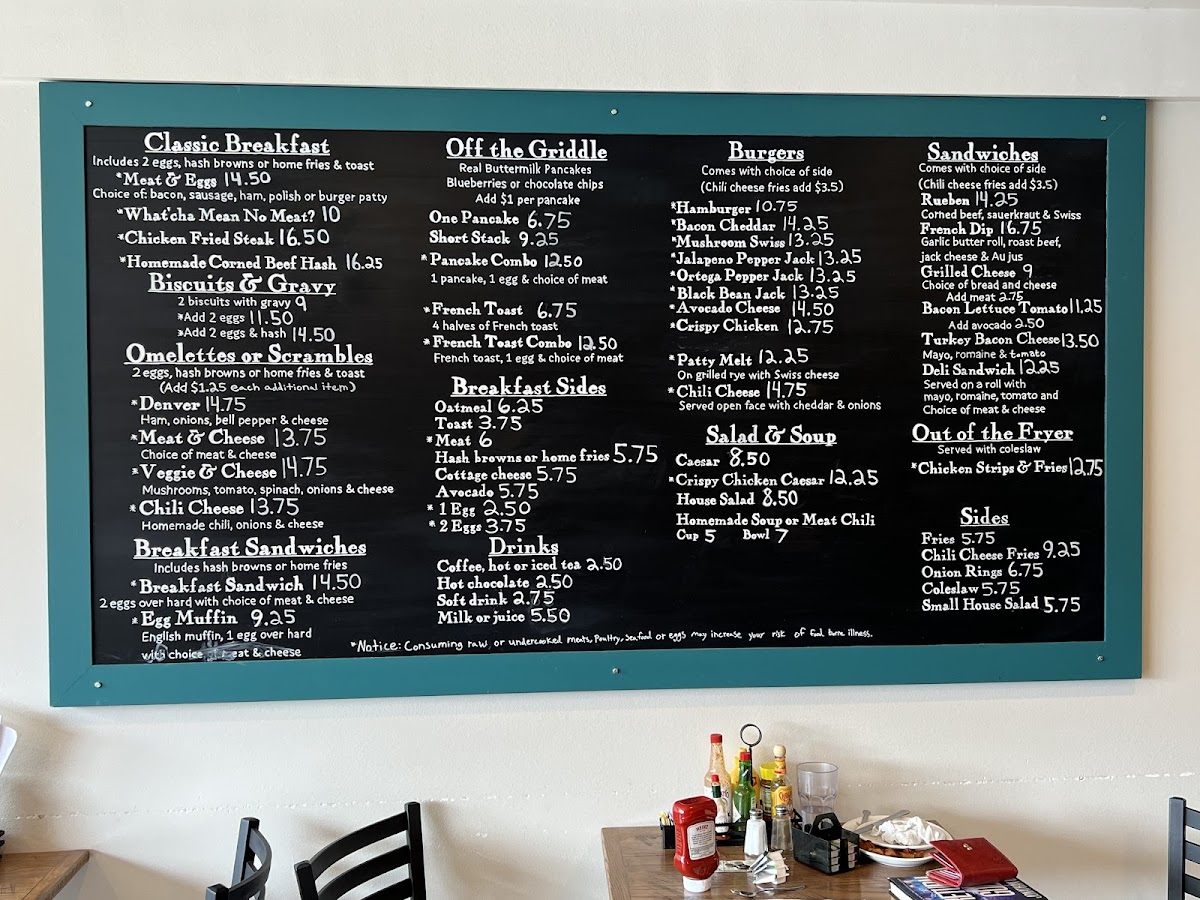 Classic Breakfast
Includes 2 eggs, hash browns or home fries & toast
*Meat & Eggs 14.50
Choice of: bacon, sausage, ham, polish or burger patty
*What'cha Mean No Meat? 10
*Chicken Fried Steak 16.50
*Homemade Corned Beef Hash 16.25
Biscuits & Gravy
2 biscuits with gravy 9
*Add 2 eggs 11.50
*Add 2 eggs & hash 14.50
Omelettes or Scrambles
2 eggs, hash browns or home fries & toast
(Add $1.25 each additional item)
*Denver 14.75
Ham, onions, bell pepper & cheese
*Meat & Cheese 13.75
Choice of meat & cheese
*Veggie & Cheese 14.75
Mushrooms, tomato, spinach, onions & cheese
*Chili Cheese 13.75
Homemade chili, onions & cheese
Breakfast Sandwiches
Includes hash browns or home fries
*Breakfast Sandwich 14.50
2 eggs over hard with choice of meat & cheese
*Egg Muffin 9.25
English muffin, 1 egg over hard
with choice of meat & cheese
Off the Griddle
Real Buttermilk Pancakes
Blueberries or chocolate chips
Add $1 per pancake
One Pancake 6.75
Short Stack 9.25
*Pancake Combo 12.50
1 pancake, 1 egg & choice of meat
*French Toast 6.75
4 halves of French toast
*French Toast Combo 12.50
French toast, 1 egg & choice of meat
Breakfast Sides
Oatmeal 6.25
Toast 3.75
*Meat 6
Hash browns or home fries 5.75
Cottage cheese 5.75
Avocado 5.75
*1 Egg 2.50
*2 Eggs 3.75
Drinks
Coffee, hot or iced tea 2.50
Hot chocolate 2.50
Soft drink 2.75
Milk or juice 5.50
Burgers
Comes with choice of side
(Chili cheese fries add $3.5)
*Hamburger 10.75
*Bacon Cheddar 14.25
*Mushroom Swiss 13.25
*Jalapeno Pepper Jack 13.25
*Ortega Pepper Jack 13.25
*Black Bean Jack 13.25
*Avocado Cheese 14.50
*Crispy Chicken 12.75
*Patty Melt 12.25
On grilled rye with Swiss cheese
*Chili Cheese 14.75
Served open face with cheddar & onions
Salad & Soup
Caesar 8.50
*Crispy Chicken Caesar 12.25
House Salad 8.50
Homemade Soup or Meat Chili
Cup 5 Bowl 7
Sandwiches
Comes with choice of side
(Chili cheese fries add $3.5)
Rueben 14.25
Corned beef, sauerkraut & Swiss
French Dip 16.75
Garlic butter roll, roast beef,
jack cheese & Au jus
Grilled Cheese 9
Choice of bread and cheese
Add meat 2.75
Bacon Lettuce Tomato 11.25
Add avocado 2.50
Turkey Bacon Cheese 13.50
Mayo, romaine & tomato
Deli Sandwich 12.25
Served on a roll with
mayo, romaine, tomato and
Choice of meat & cheese
Out of the Fryer
Served with coleslaw
*Chicken Strips & Fries 12.75
Sides
Fries 5.75
Chili Cheese Fries 9.25
Onion Rings 6.75
Coleslaw 5.75
Small House Salad 5.75
*Notice: Consuming raw or undercooked meats, Poultry, Seafood or eggs may increase your risk of food borne illness.